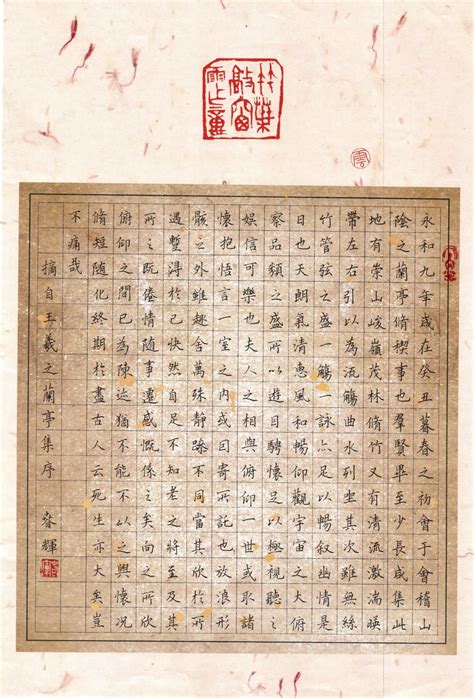 竹葉
敲窗
雲
永和九年歲在癸丑暮春之初會于會稽山
陰之蘭亭脩稧事也羣賢畢至少長咸集此
地有崇山峻嶺茂林脩竹又有清流激湍暎
帶左右引以為流觴曲水列坐其次雖無絲
竹管弦之盛一觴一詠亦足以暢叙幽情是
日也天朗氣清惠風和暢仰觀宇宙之大俯
察品類之盛所以遊目騁懷足以極視聽之
娛信可樂也夫人之相與俯仰一世或取諸
懷抱悟言一室之內或因寄所託也放浪形
骸之外雖趣舍萬殊靜躁不同當其欣於所
遇蹔得於己快然自足不知老之將至及其
所之既倦情隨事遷感慨係之矣向之所欣
俯仰之間已為陳迹猶不能不以之興懷況
脩短隨化終期於盡古人云死生亦大矣豈
不痛哉
摘自王羲之蘭亭集序 春輝